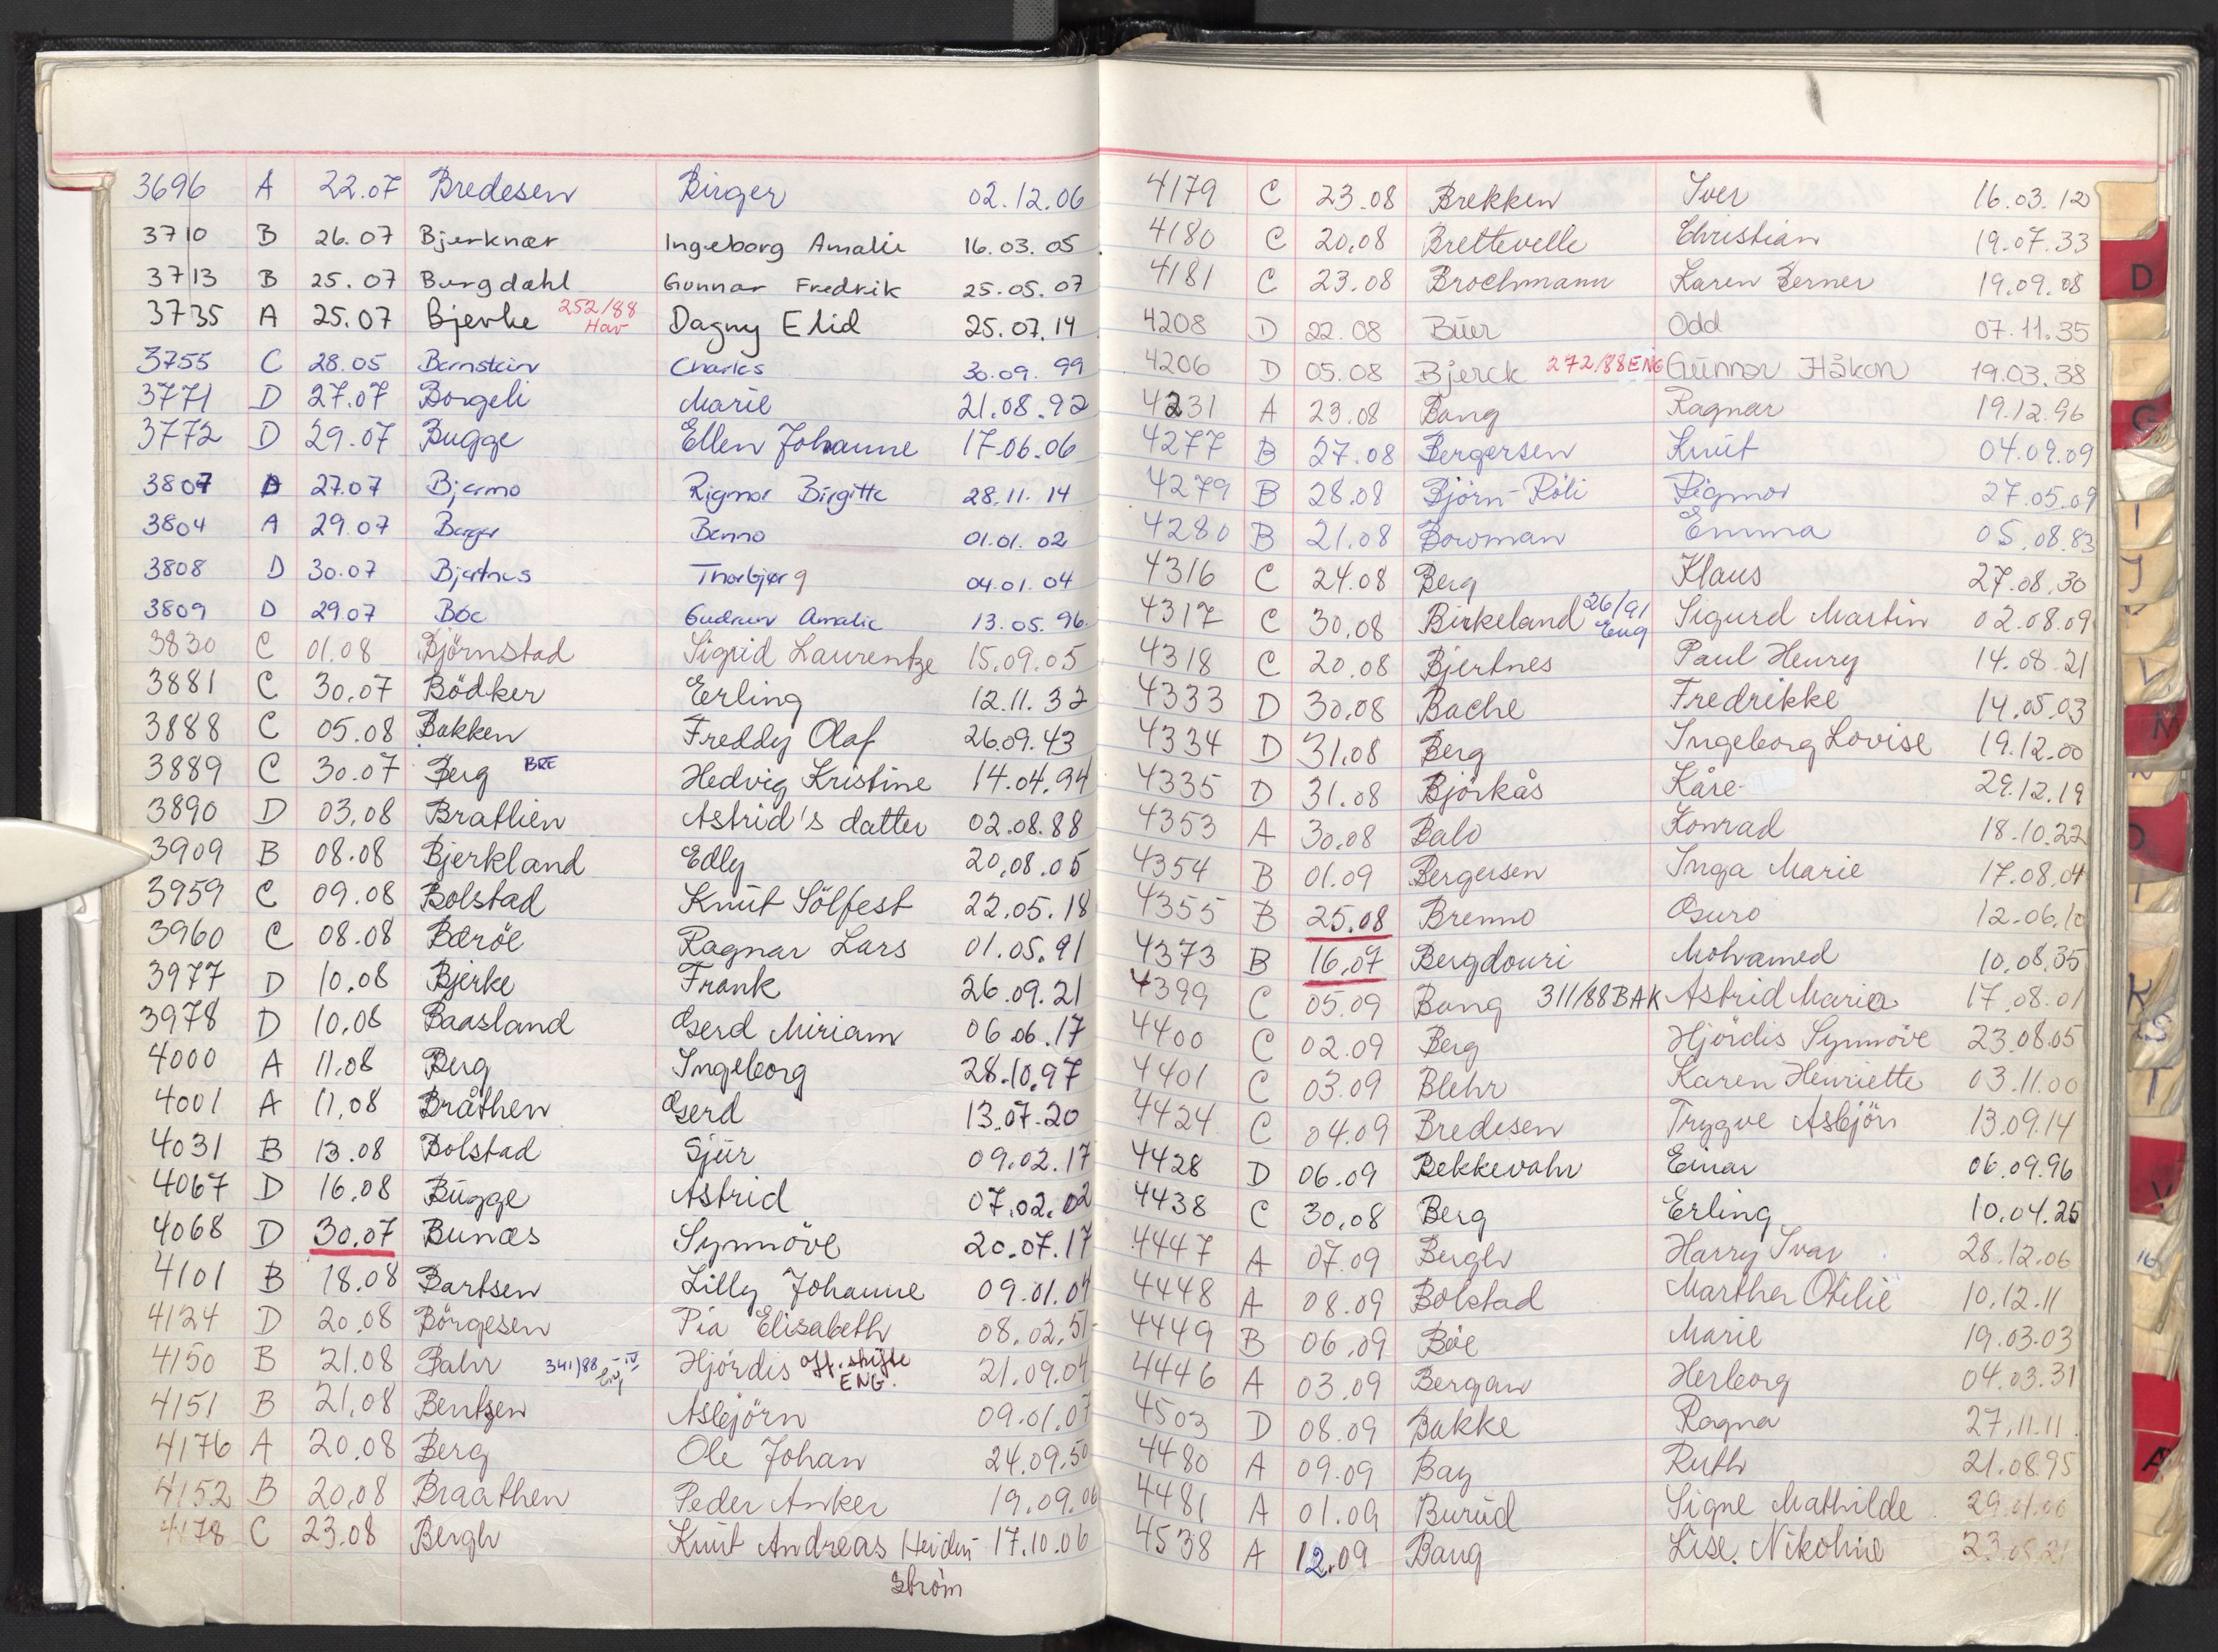 3696 A 22.07 Bredesen Birger 02.12.06
3710 B 26.07 Bjerknær Ingeborg Amalie 16.03.05
3713 B 25.07 Burgdahl Gunnar Fredrik 25.05.07
3735 A 25.07 Bjerke 252/88 Hav Dagny Elid 25.07.14
3755 C 28.05 Bernstein Charles 30.09.99
3771 D 27.07 Borgeli Marie 21.08.92
3772 D 29.07 Bugge Ellen Johanne 17.06.06
3807 D 27.07 Bjermo Rigmor Birgitte 28.11.14
3804 A 29.07 Berger Benno 01.01.02
3808 D 30.07 Bjertnes Thorbjørg 04.01.04
3809 D 29.07 Boe Gudrun Amalie 13.05.96
3830 C 01.08 Björnstad Sigrid Laurentze 15.09.05
3881 C 30.07 Bödker Erling 12.11.32
3888 C 05.08 Bakken Freddy Olaf 26.09.43
3889 C 30.07 Berg BRE Hedvig Kristine 14.04.94
3890 D 03.08 Bratlien Astrid's datter 02.08.88
3909 B 08.08 Bjerkland Edly 20.08.05
3959 C 09.08 Bolstad Knut Sölfest 22.05.18
3960 C 08.08 Bæröe Ragnar Lars 01.05.91
3977 D 10.08 Bjerke Frank 26.09.21
3978 D 10.08 Baasland Gerd Miriam 06.06.17
4000 A 11.08 Berg Ingeborg 28.10.97
4001 A 11.08 Bråthen Gerd 13.07.20
4031 B 13.08 Bolstad Sjur 09.02.17
4067 D 16.08 Bugge Astrid 07.02.02
4068 D 30.07 Bunæs Synnöve 20.07.17
4101 B 18.08 Bartsen Lilly Johanne 09.01.04
4124 D 20.08 Börgesen Pia Elisabeth 08.02.51
4150 B 21.08 Bahr 341/88 Hjördis off. skifte ENG. 21.09.04
4151 B 21.08 Bentzen Asbjörn 09.01.07
4176 A 20.08 Berg Ole Johan 24.09.50
4152 B 20.08 Braathen Peder Anker 19.09.06
4178 C 23.08 Bergh Knut Andreas Heiden- 17.10.06
ström
4179 C 23.08 Brekken Iver 16.03.12
4180 C 20.08 Brettevelle Christian 19.07.33
4181 C 23.08 Brochmann Karen Berner 19.09.08
4208 D 22.08 Buer Odd 07.11.35
4206 D 05.08 Bjerck 272/88 ENG Gunnar Håkon 19.03.38
4231 A 23.08 Bang Ragnar 19.12.96
4277 B 27.08 Bergersen Knut 04.09.09
4279 B 28.08 Björn-Röli Rigmor 27.05.09
4280 B 21.08 Bowman Emma 05.08.83
4316 C 24.08 Berg Klaus 27.08.30
4317 C 30.08 Birkeland 26/91 Eng Sigurd Martin 02.08.09
4318 C 20.08 Bjertnes Paul Henry 14.08.21
4333 D 30.08 Bache Fredrikke 14.05.03
4334 D 31.08 Berg Ingeborg Lovise 19.12.00
4335 D 31.08 Björkås Kåre 29.12.19
4353 A 30.08 Balo Konrad 18.10.22
4354 B 01.09 Bergersen Inga Marie 17.08.04
4355 B 25.08 Brenno Osuro 12.06.10
4373 B 16.07 Bergdouri Mohamed 10.08.35
4399 C 05.09 Bang 311/88 BAK Astrid Maria 17.08.01
4400 C 02.09 Berg Hjördis Synnöve 23.08.05
4401 C 03.09 Blehr Karen Henriette 03.11.00
4424 C 04.09 Bredesen Trygve Asbjörn 13.09.14
4428 D 06.09 Bekkevahr Einar 06.09.96
4438 C 30.08 Berg Erling 10.04.25
4447 A 07.09 Bergh Harry Ivar 28.12.06
4448 A 08.09 Bolstad Martha Otilie 10.12.11
4449 B 06.09 Böe Marie 19.03.03
4446 A 03.09 Bergan Herborg 04.03.31
4503 D 08.09 Bakke Ragna 27.11.11
4480 A 09.09 Bay Ruth 21.08.95
4481 A 01.09 Burud Signe Mathilde 29.01.00
4538 A 12.09 Bang Lise Nikoline 23.08.21
D
G
I
J
V
M
N
O
K
S
T
V
16
A